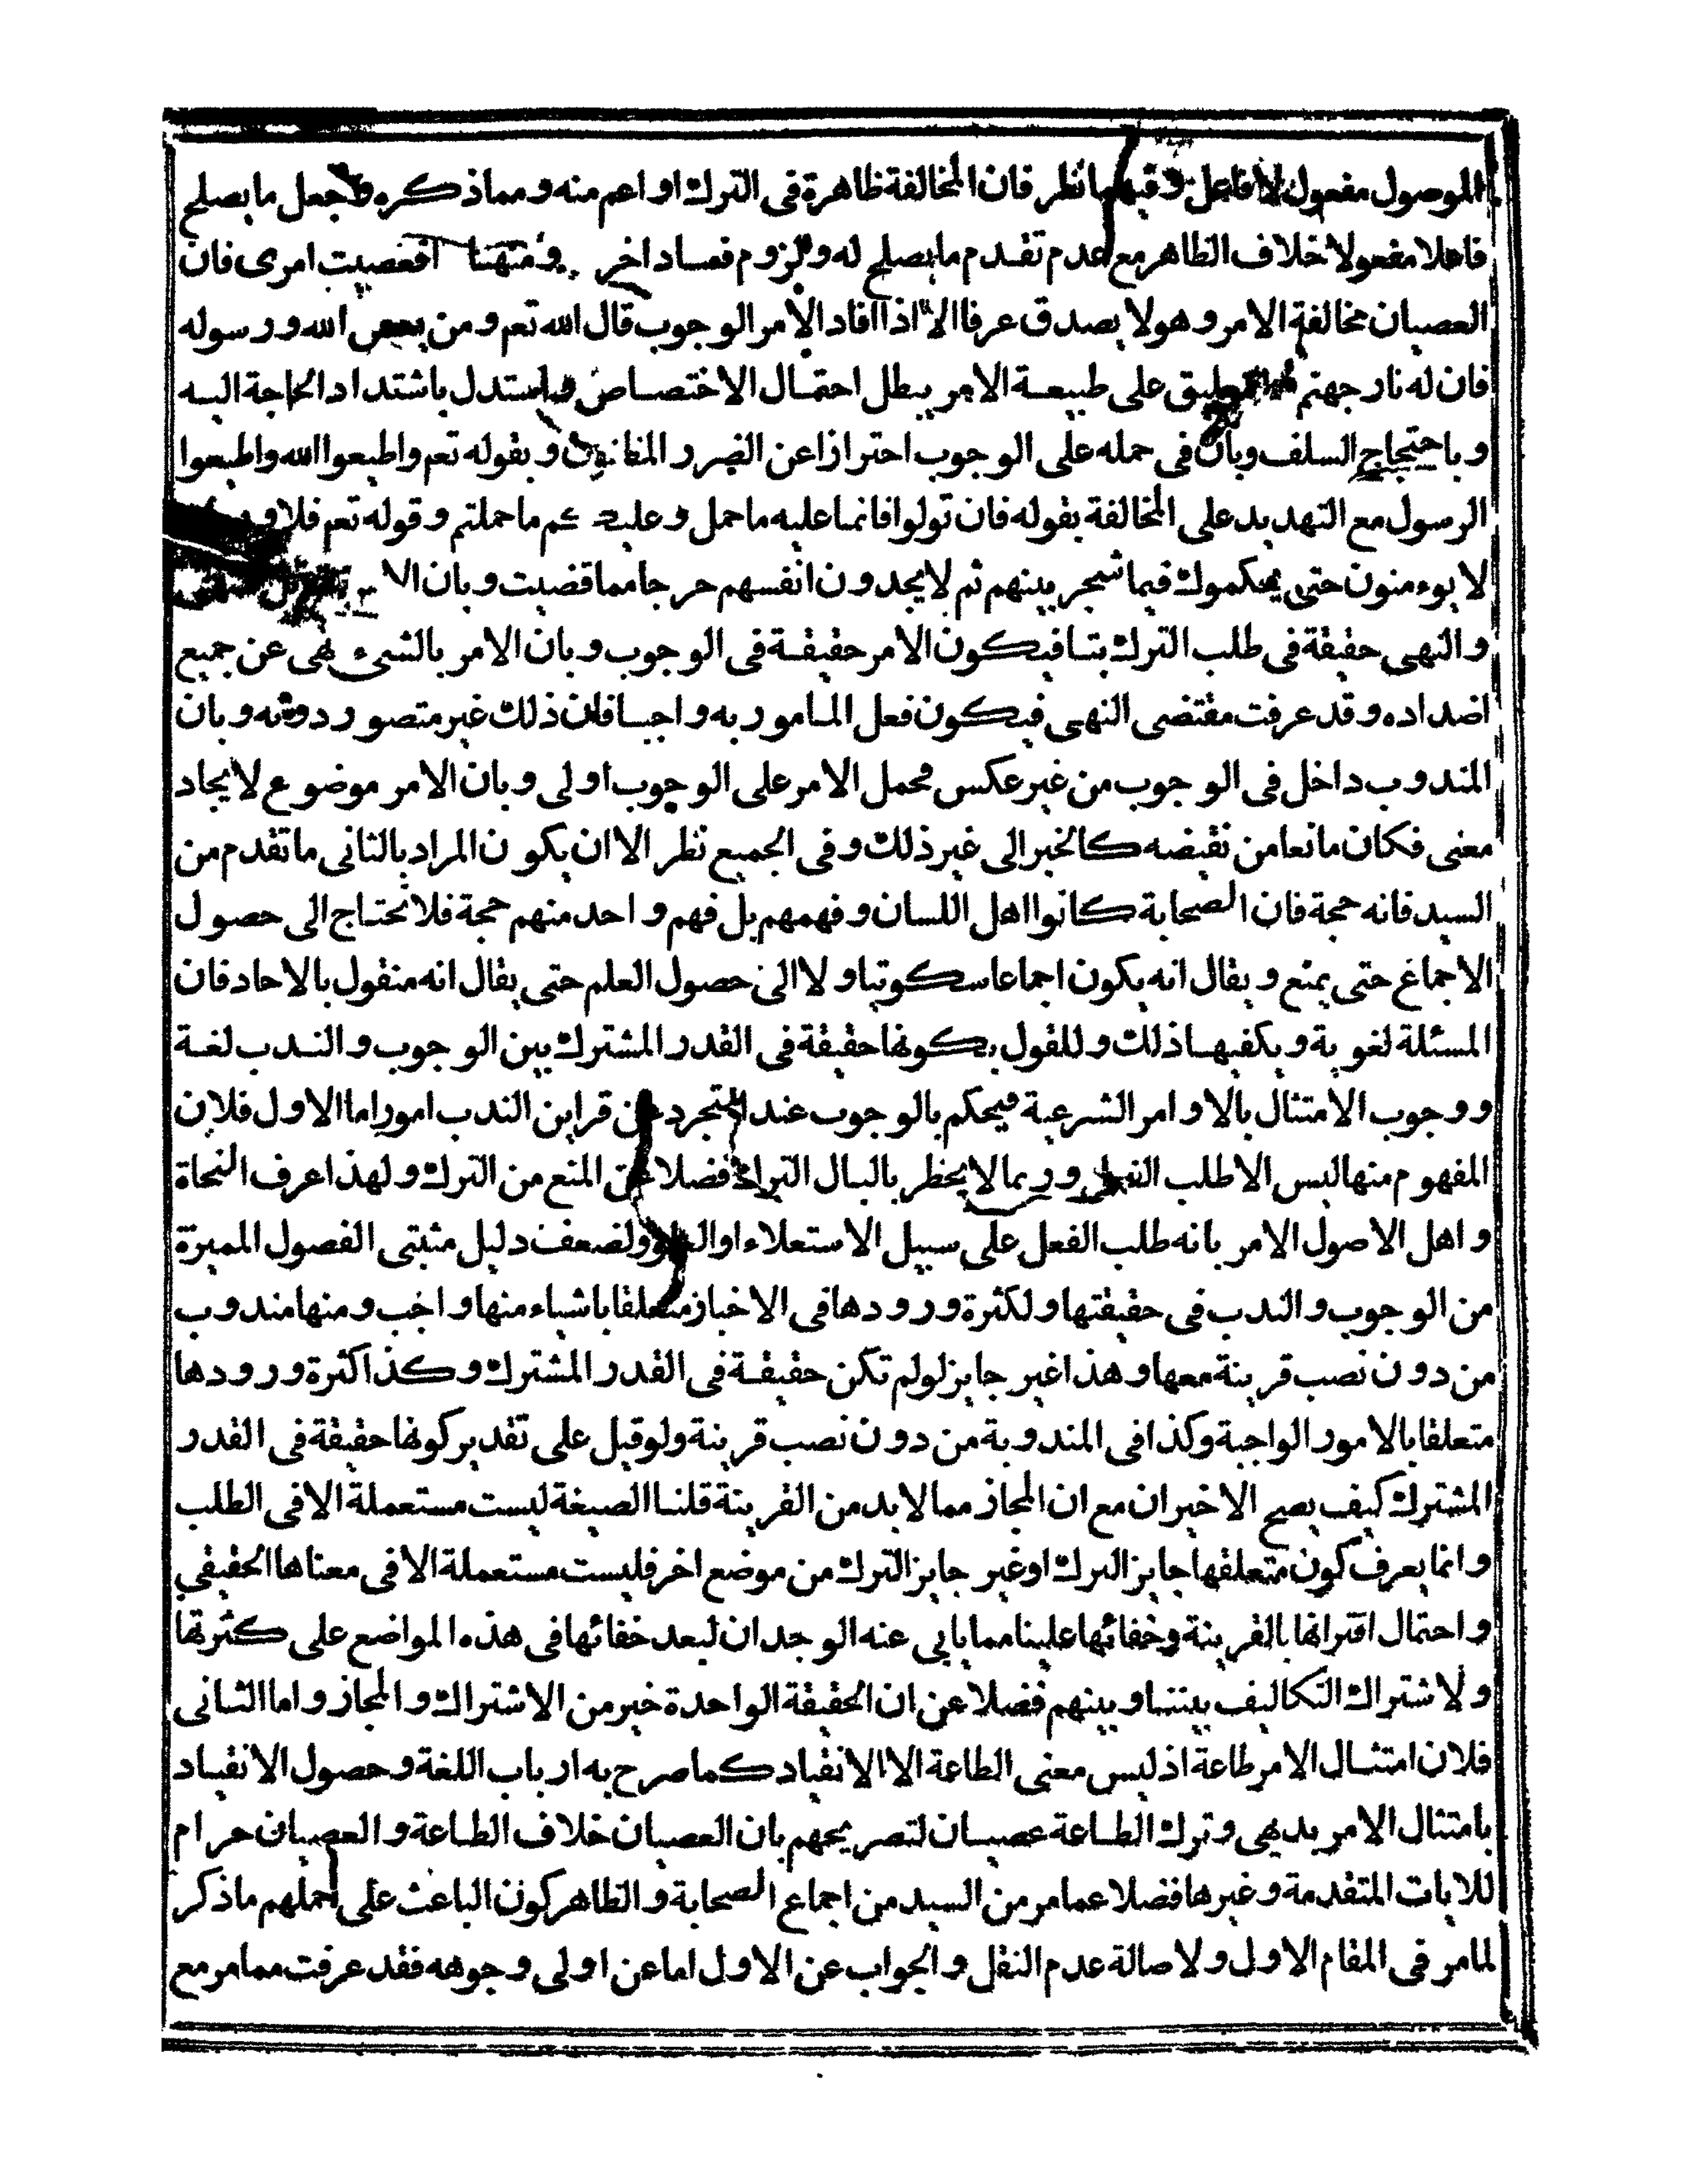 الموصول مفعول لا فاعل وفيهما نظر فان المخالفة ظاهرة فى الترك او اعم منه ومما ذكره وجعل ما يصلح
فاعلا مفعولا خلاف الظاهر مع عدم تقدم ما يصلح له ولزوم فساد اخر ومنها افعصيت امرى فان
العصيان مخالفة الامر وهو لا يصدق عرفا الا اذا افاد الامر الوجوب قال الله تعم ومن يعص الله ورسوله
فان له نار جهنم على طبيعة الامر يبطل احتمال الاختصاص باشتداد الحاجة اليه
وباحتجاج السلف وبان فى حمله على الوجوب احترازا عن الضرر المظنون وبقوله تعم واطيعوا الله واطيعوا
الرسول مع التهديد على المخالفة بقوله فان تولوا فانما عليه ما حمل وعليكم ما حملتم وقوله تعم فلا
لا يوءمنون حتى يحكموك فيما شجر بينهم ثم لا يجدون انفسهم حرجا مما قضيت وبان
والنهى حقيقة فى طلب الترك بتا فيكون الامر حقيقة فى الوجوب وبان الامر بالشىء نهى عن جميع
اضداده وقد عرفت مقتضى النهى فيكون فعل المامور به واجبا فان ذلك غير متصور دونه وبان
المندوب داخل فى الوجوب من غير عكس فحمل الامر على الوجوب اولى وبان الامر موضوع لايجاد
معنى فكان مانعا من نقيضه كالخبر الى غير ذلك وفى الجميع نظر الا ان يكون المراد بالثانى ما تقدم من
السيد فانه حجة فان الصحابة كانوا اهل اللسان وفهمهم بل فهم واحد منهم حجة فلا نحتاج الى حصول
الاجماع حتى يمنع ويقال انه يكون اجماعا سكوتيا ولا الى حصول العلم حتى يقال انه منقول بالاحاد فان
المسئلة لغوية ويكفيها ذلك وللقول بكونها حقيقة فى القدر المشترك بين الوجوب والندب لغة
ووجوب الامتثال بالاوامر الشرعية فيحكم بالوجوب عند التجرد عن قراين الندب امور اما الاول فلان
المفهوم منها ليس الا طلب الفعل وربما لا يخطر بالبال الترك فضلا عن المنع من الترك ولهذا عرف النحاة
واهل الاصول الامر بانه طلب الفعل على سبيل الاستعلاء او العلو ولضعف دليل مثبتى الفصول المميزة
من الوجوب والندب فى حقيقتها ولكثرة ورودها فى الاخبار متعلقا باشياء منها واجب ومنها مندوب
من دون نصب قرينة معها وهذا غير جايز لو لم تكن حقيقة فى القدر المشترك وكذا كثرة ورودها
متعلقا بالامور الواجبة وكذا فى المندوبة من دون نصب قرينة ولو قيل على تقدير كونها حقيقة فى القدر
المشترك كيف يصح الاخيران مع ان المجاز مما لابد من القرينة قلنا الصيغة ليست مستعملة الا فى الطلب
وانما يعرف كون متعلقها جايز الترك او غير جايز الترك من موضع اخر فليست مستعملة الا فى معناها الحقيقي
واحتمال اقترانها بالقرينة وخفائها علينا مما يابى عنه الوجدان لبعد خفائها فى هذه المواضع على كثرتها
ولاشتراك التكاليف بيننا وبينهم فضلا عن ان الحقيقة الواحدة خير من الاشتراك والمجاز واما الثانى
فلان امتثال الامر طاعة اذ ليس معنى الطاعة الا الانقياد كما صرح به ارباب اللغة وحصول الانقياد
بامتثال الامر بديهى وترك الطاعة عصيان لتصريحهم بان العصيان خلاف الطاعة والعصيان حرام
للايات المتقدمة وغيرها فضلا عما مر من السيد من اجماع الصحابة والظاهر كون الباعث على حملهم ما ذكر
لما مر فى المقام الاول ولاصالة عدم النقل والجواب عن الاول اما عن اولى وجوهه فقد عرفت مما مر مع